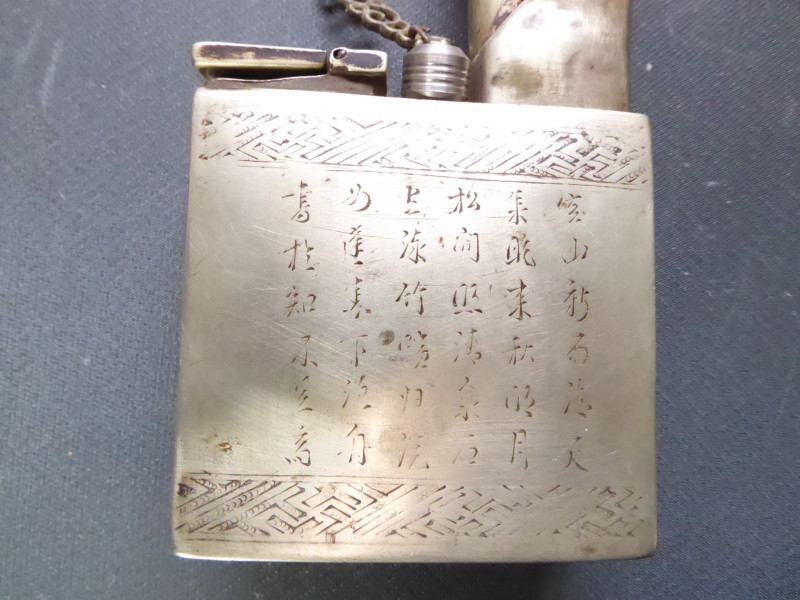 空山新雨後天
氣晚来秋明月
松间照清泉石
上流竹喧归浣
女蓮動下漁舟
書於知不足斋